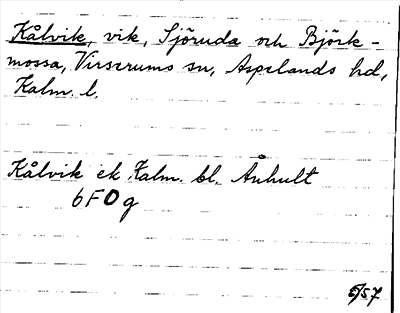 Kålvik, vik, Sjöruda och Björk-
mossa, Virserums sn, Aspelands hd,
Kalm. l.
Kålvik ek Kalm. bl. Åhult
6F0g
5/57